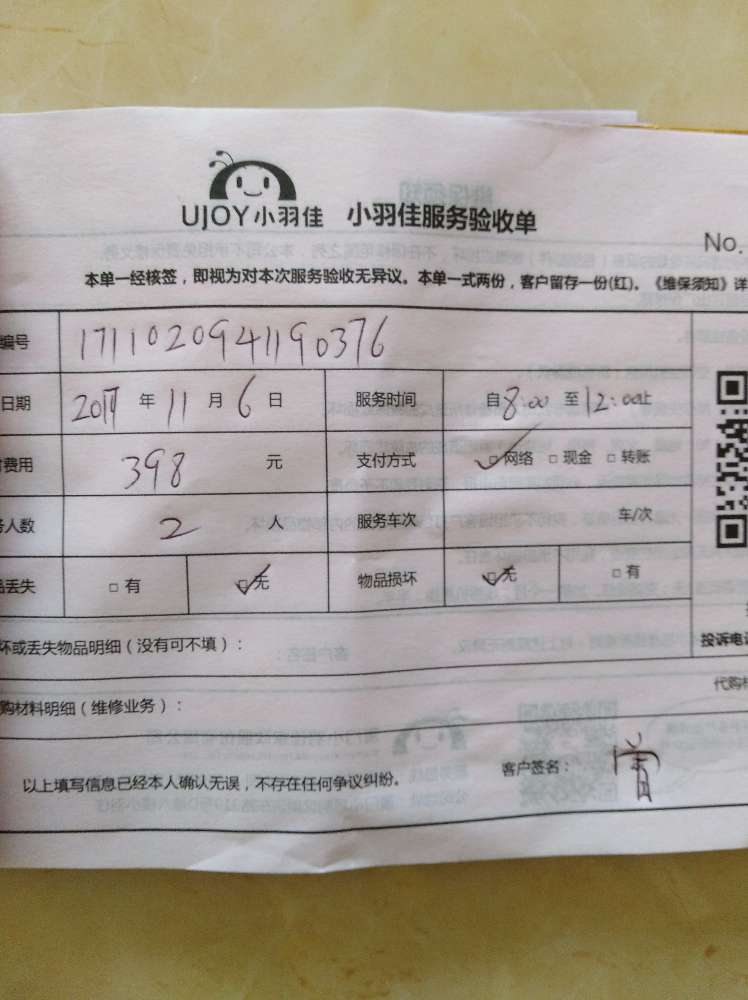 UJOY小羽佳 小羽佳服务验收单
No.
本单一经核签，即视为对本次服务验收无异议。本单一式两份，客户留存一份(红)。《维保须知》详
编号 1711020941190376
日期 2017 年 11 月 6 日 服务时间 自 8:00 至 12:00 止
费用 398 元 支付方式 网络 现金 转账
人数 2 人 服务车次 车/次
丢失 有 无 物品损坏 无 有
坏或丢失物品明细（没有可不填）：
投诉电话
购材料明细（维修业务）：
代购
以上填写信息已经本人确认无误，不存在任何争议纠纷。 客户签名：